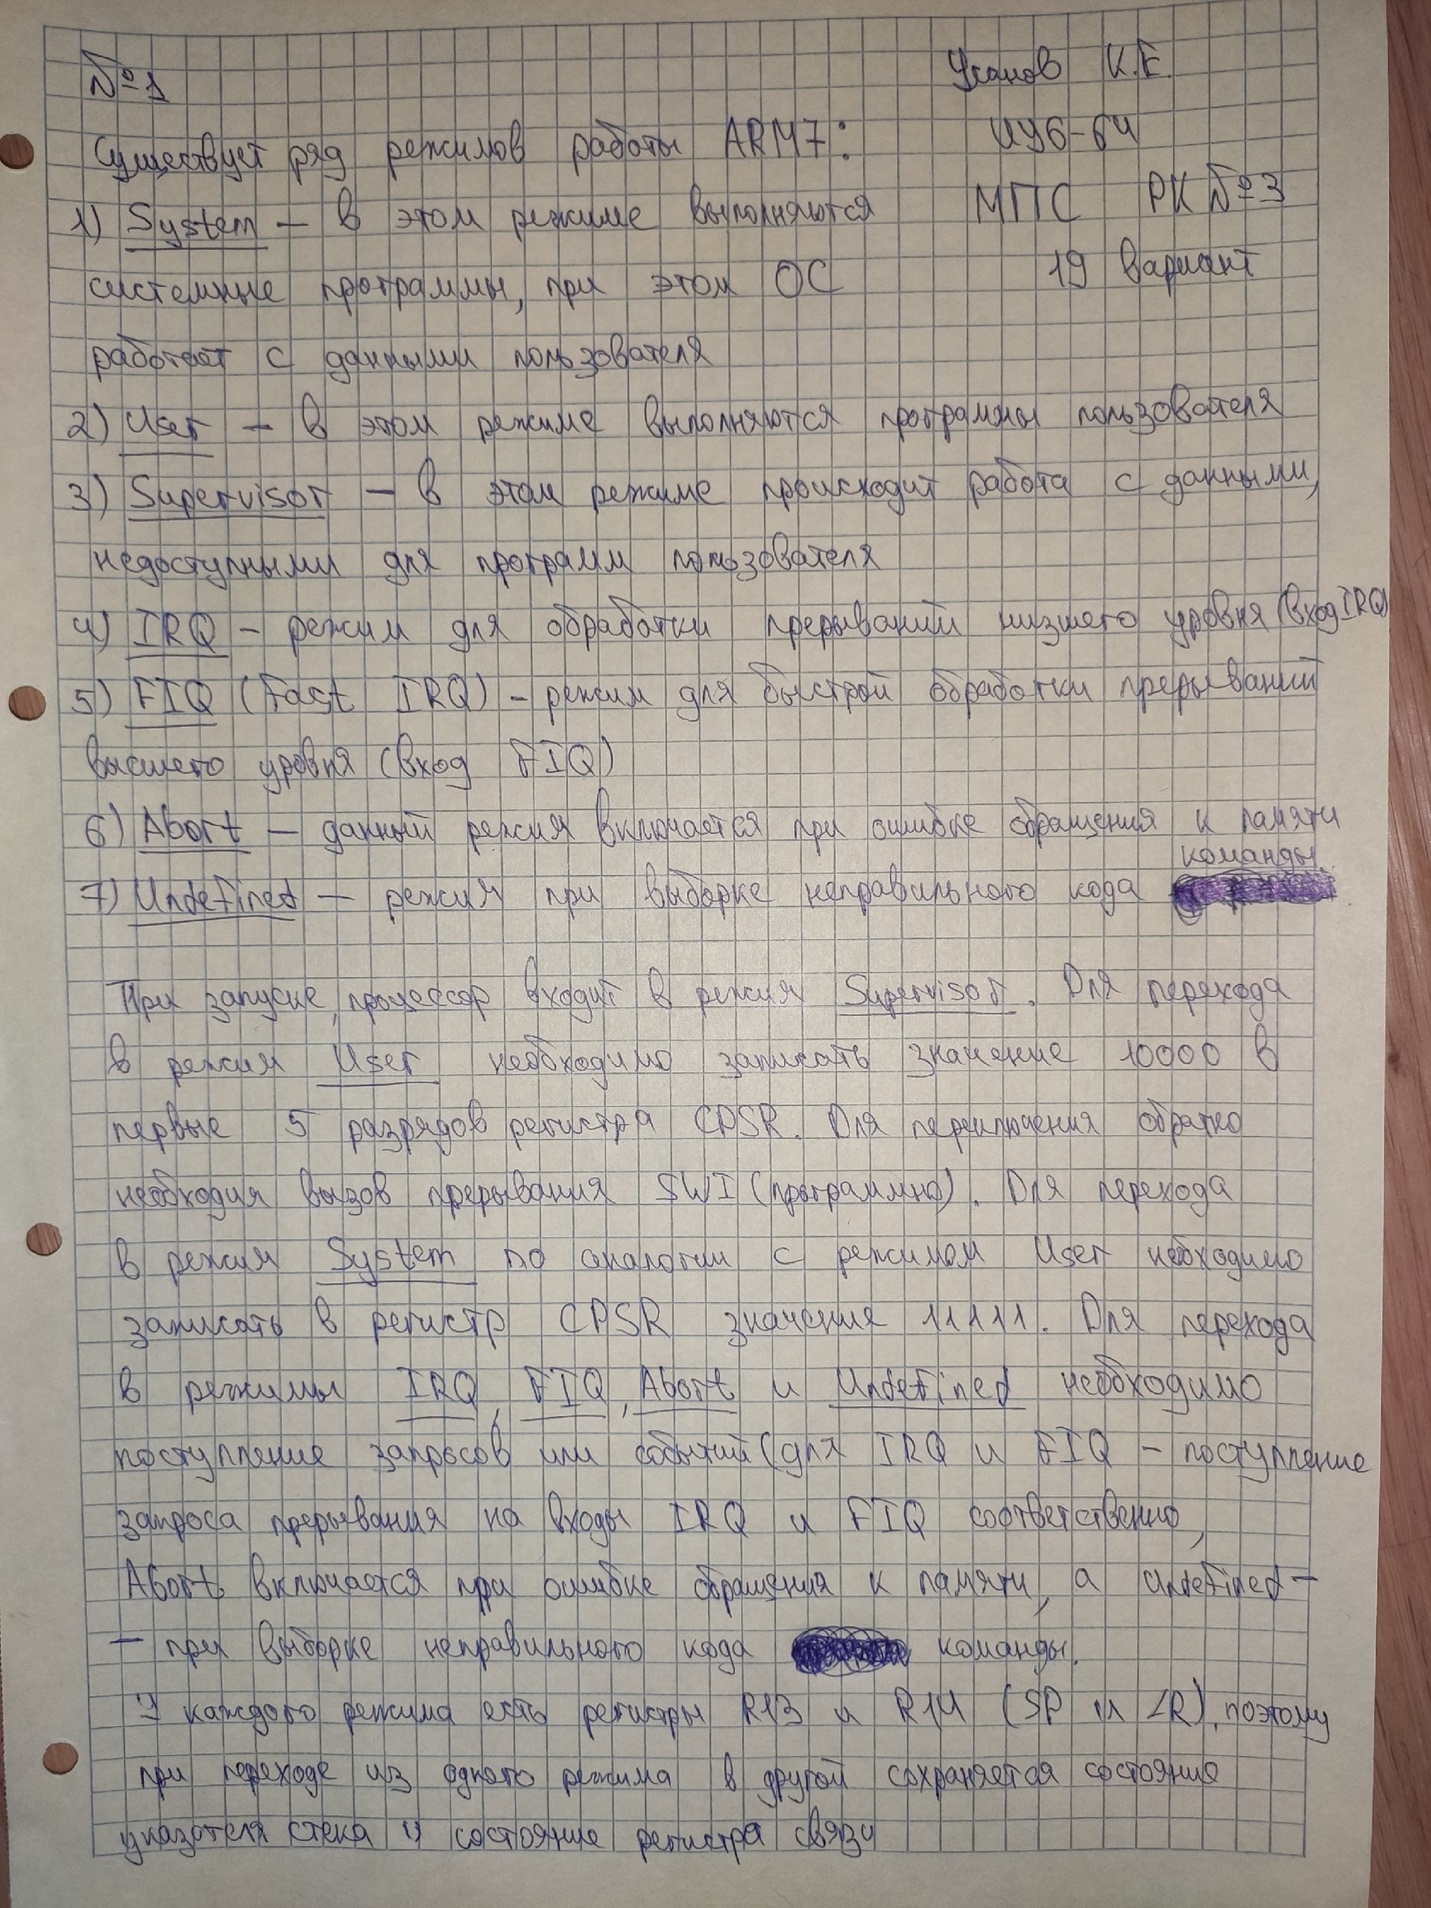 №1
Усанов К.Е.
Существует ряд режимов работы ARM7:
ИУ6-64
1) System – в этом режиме выполняются
МПС РК №3
системные программы, при этом ОС
19 вариант
работает с данными пользователя
2) User – в этом режиме выполняются программы пользователя
3) Supervisor – в этом режиме происходит работа с данными,
недоступными для программ пользователя
4) IRQ – режим для обработки прерываний низшего уровня (вход IRQ)
5) FIQ (Fast IRQ) – режим для быстрой обработки прерываний
высшего уровня (вход FIQ)
6) Abort – данный режим включается при ошибке обращения к памяти
команды
7) Undefined – режим при выборке неправильного кода
При запуске, процессор входит в режим Supervisor. Для перехода
в режим User необходимо записать значение 10000 в
первые 5 разрядов регистра CPSR. Для переключения обратно
необходим вызов прерывания SWI (программно). Для перехода
в режим System по аналогии с режимом User необходимо
записать в регистр CPSR значение 11111. Для перехода
в режимы IRQ, FIQ, Abort и Undefined необходимо
поступление запросов или событий (для IRQ и FIQ – поступление
запроса прерывания на входы IRQ и FIQ соответственно,
Abort включается при ошибке обращения к памяти, а Undefined –
– при выборке неправильного кода команды.
У каждого режима есть регистры R13 и R14 (SP и LR), поэтому
при переходе из одного режима в другой сохраняется состояние
указателя стека и состояние регистра связи